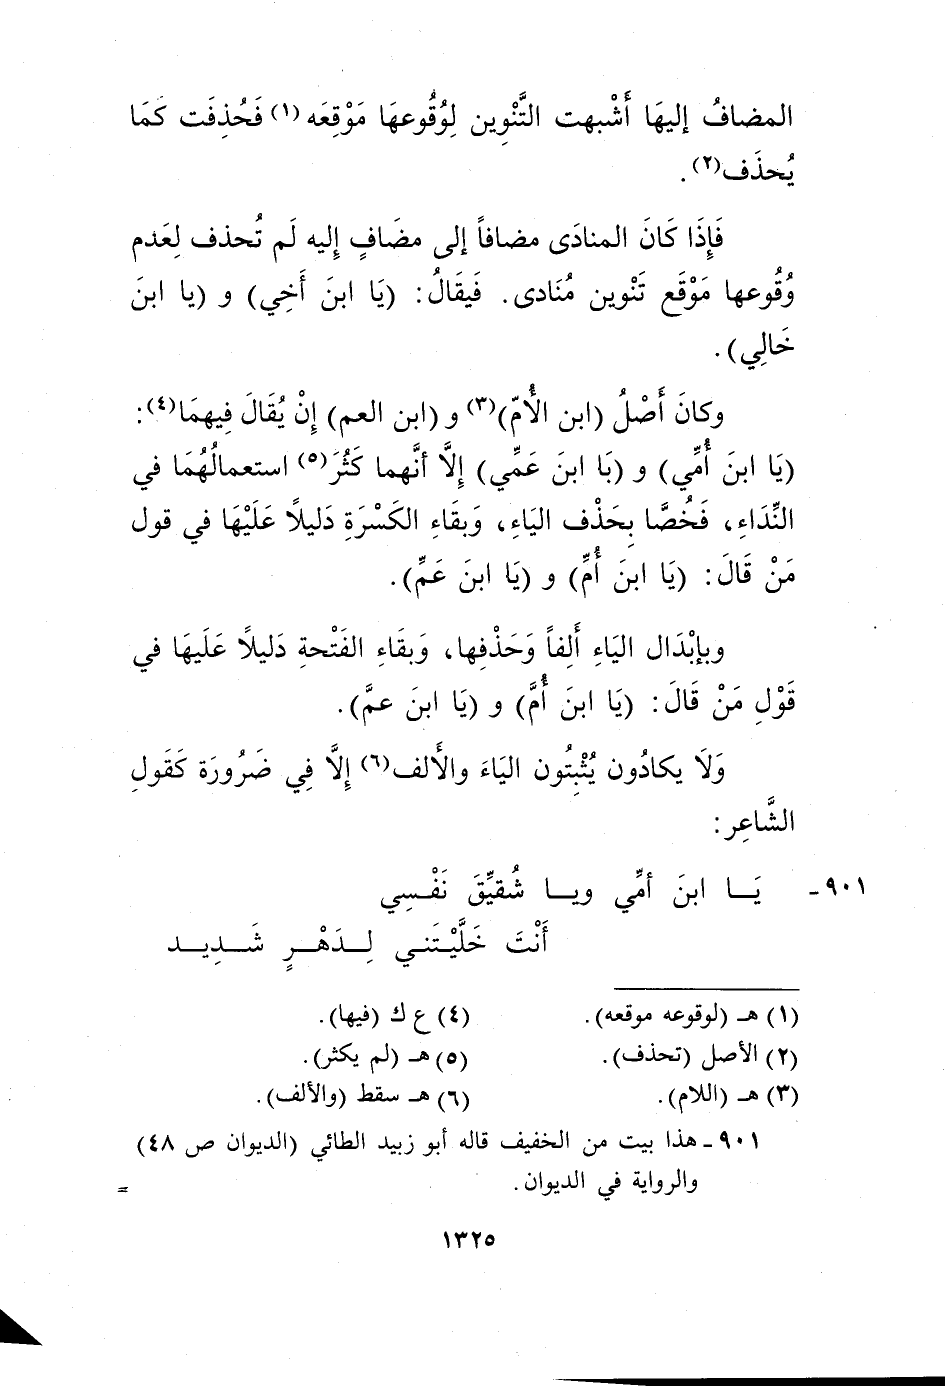 المضافُ إليهَا أَشْبهت التَّنْوِين لِوُقُوعهَا مَوْقِعَه (١) فَحُذِفَت كَمَا
يُحذَف(٢).
فَإِذَا كَانَ المنادَى مضافاً إلى مضَافٍ إِليه لَم تُحذف لِعَدم
وُقُوعها مَوْقَع تَنْوين مُنَادى. فَيقَالُ: (يَا ابنَ أَخِي) و (يا ابنَ
خَالِي).
وكانَ أَصْلُ (ابن الأُمّ)(٣) و (ابن العم) إِنْ يُقَالَ فِيهمَا(٤):
(يَا ابنَ أُمِّي) و (بَا ابنَ عَمِّي) إِلاَّ أنَّهما كَثُرَ(٥) استعمالُهُمَا في
النِّدَاءِ، فَخُصَّا بِحَذْف اليَاءِ، وَبقَاءِ الكَسْرَةِ دَليلاً عَلَيْهَا في قول
مَنْ قَالَ: (يَا ابنَ أُمِّ) و (يَا ابنَ عَمِّ).
وبإبْدَال اليَاءِ أَلِفاً وَحَذْفِها، وَبقَاءِ الفَتْحةِ دَليلاً عَلَيهَا في
قَوْلِ مَنْ قَالَ: (يَا ابنَ أُمَّ) و (يَا ابنَ عمَّ).
وَلاَ يكادُون يُثْبِتُون اليَاءَ والأَلف(٦) إِلاَّ فِي ضَرُورَة كَقَولِ
الشَّاعِر:
٩٠١- يَـا ابنَ أمِّي ويـا شُقَيِّقَ نَفْـسِي
أَنْتَ خَلَّيْـتَنـي لِـدَهْـرٍ شَـدِيـد
(١) هـ (لوقوعه موقعه). (٤) ع ك (فيها).
(٢) الأصل (تحذف). (٥) هـ (لم يكثر).
(٣) هـ (اللام). (٦) هـ سقط (والألف).
٩٠١ ـ هذا بيت من الخفيف قاله أبو زبيد الطائي (الديوان ص ٤٨)
والرواية في الديوان.
=
١٣٢٥